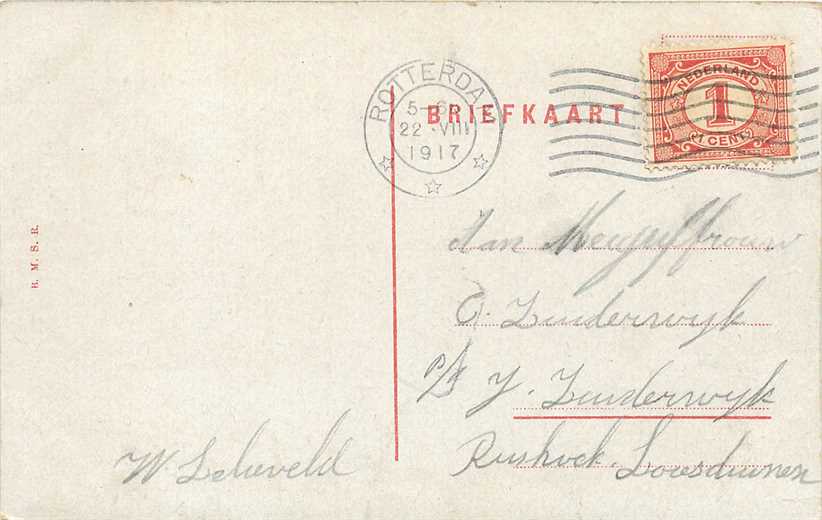 ROTTERDA
5-6
22 VIII
1917
BRIEFKAART
NEDERLAND
1
1 CENT
R. M. S. R.
Aan
C. Zuiderwyk
p/a J. Zuiderwyk
Loosduinen
W